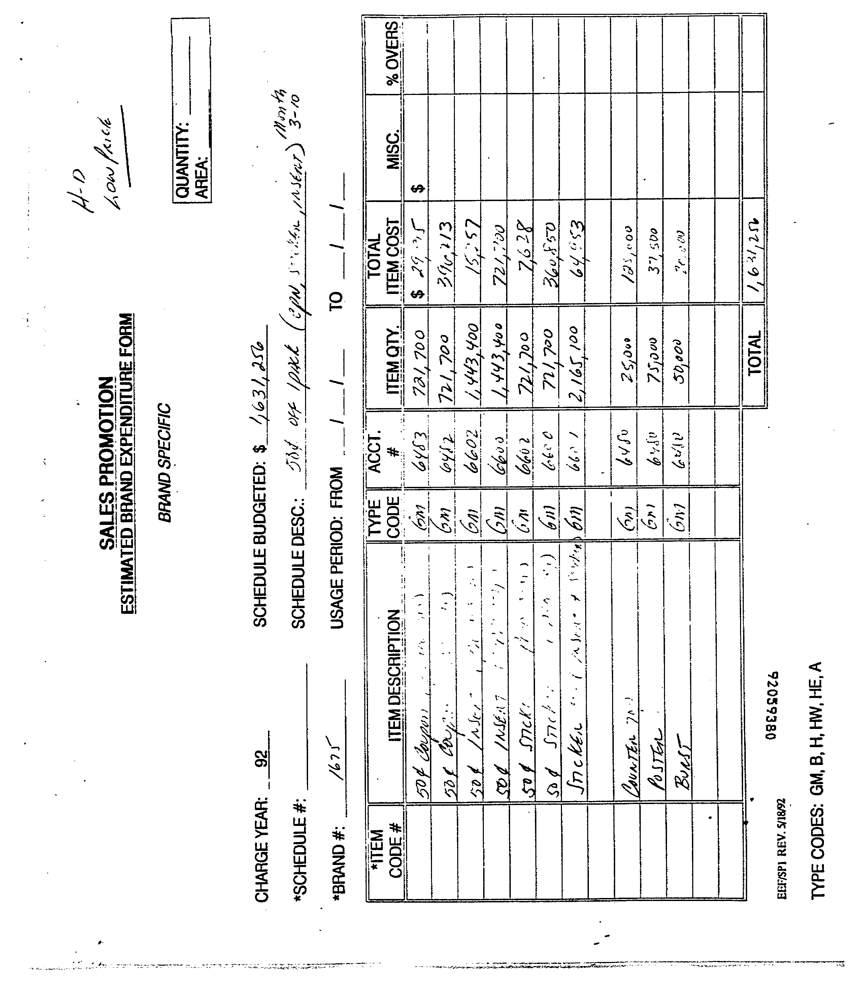 H-D
LOW PRICE
SALES PROMOTION
ESTIMATED BRAND EXPENDITURE FORM
BRAND SPECIFIC
QUANTITY:
AREA:
CHARGE YEAR: 92
SCHEDULE BUDGETED: $ 1,631,256
*SCHEDULE #:
SCHEDULE DESC.: 50¢ off 1 pack (CPN, Sticker, INSERT) Month 3-10
*BRAND #: 1675
USAGE PERIOD: FROM / / TO / /
*ITEM CODE # ITEM DESCRIPTION TYPE CODE ACCT. # ITEM QTY. TOTAL ITEM COST MISC. % OVERS
50¢ Coupon GM 6483 721,700 $ $
50¢ Coupon GM 6482 721,700 396,213
50¢ INSERT GM 6602 1,443,400
50¢ INSERT GM 6600 1,443,400 721,700
50¢ STICKER GM 6602 721,700 7,628
50¢ STICKER GM 6600 721,700 360,850
STICKER GM 6601 2,165,100
COUNTER GM 6480 25,000 125,000
POSTER GM 6480 75,000 37,500
BURST GM 6480 50,000
TOTAL 1,631,256
92059380
EEF/SP1 REV. 5/18/92
TYPE CODES: GM, B, H, HW, HE, A